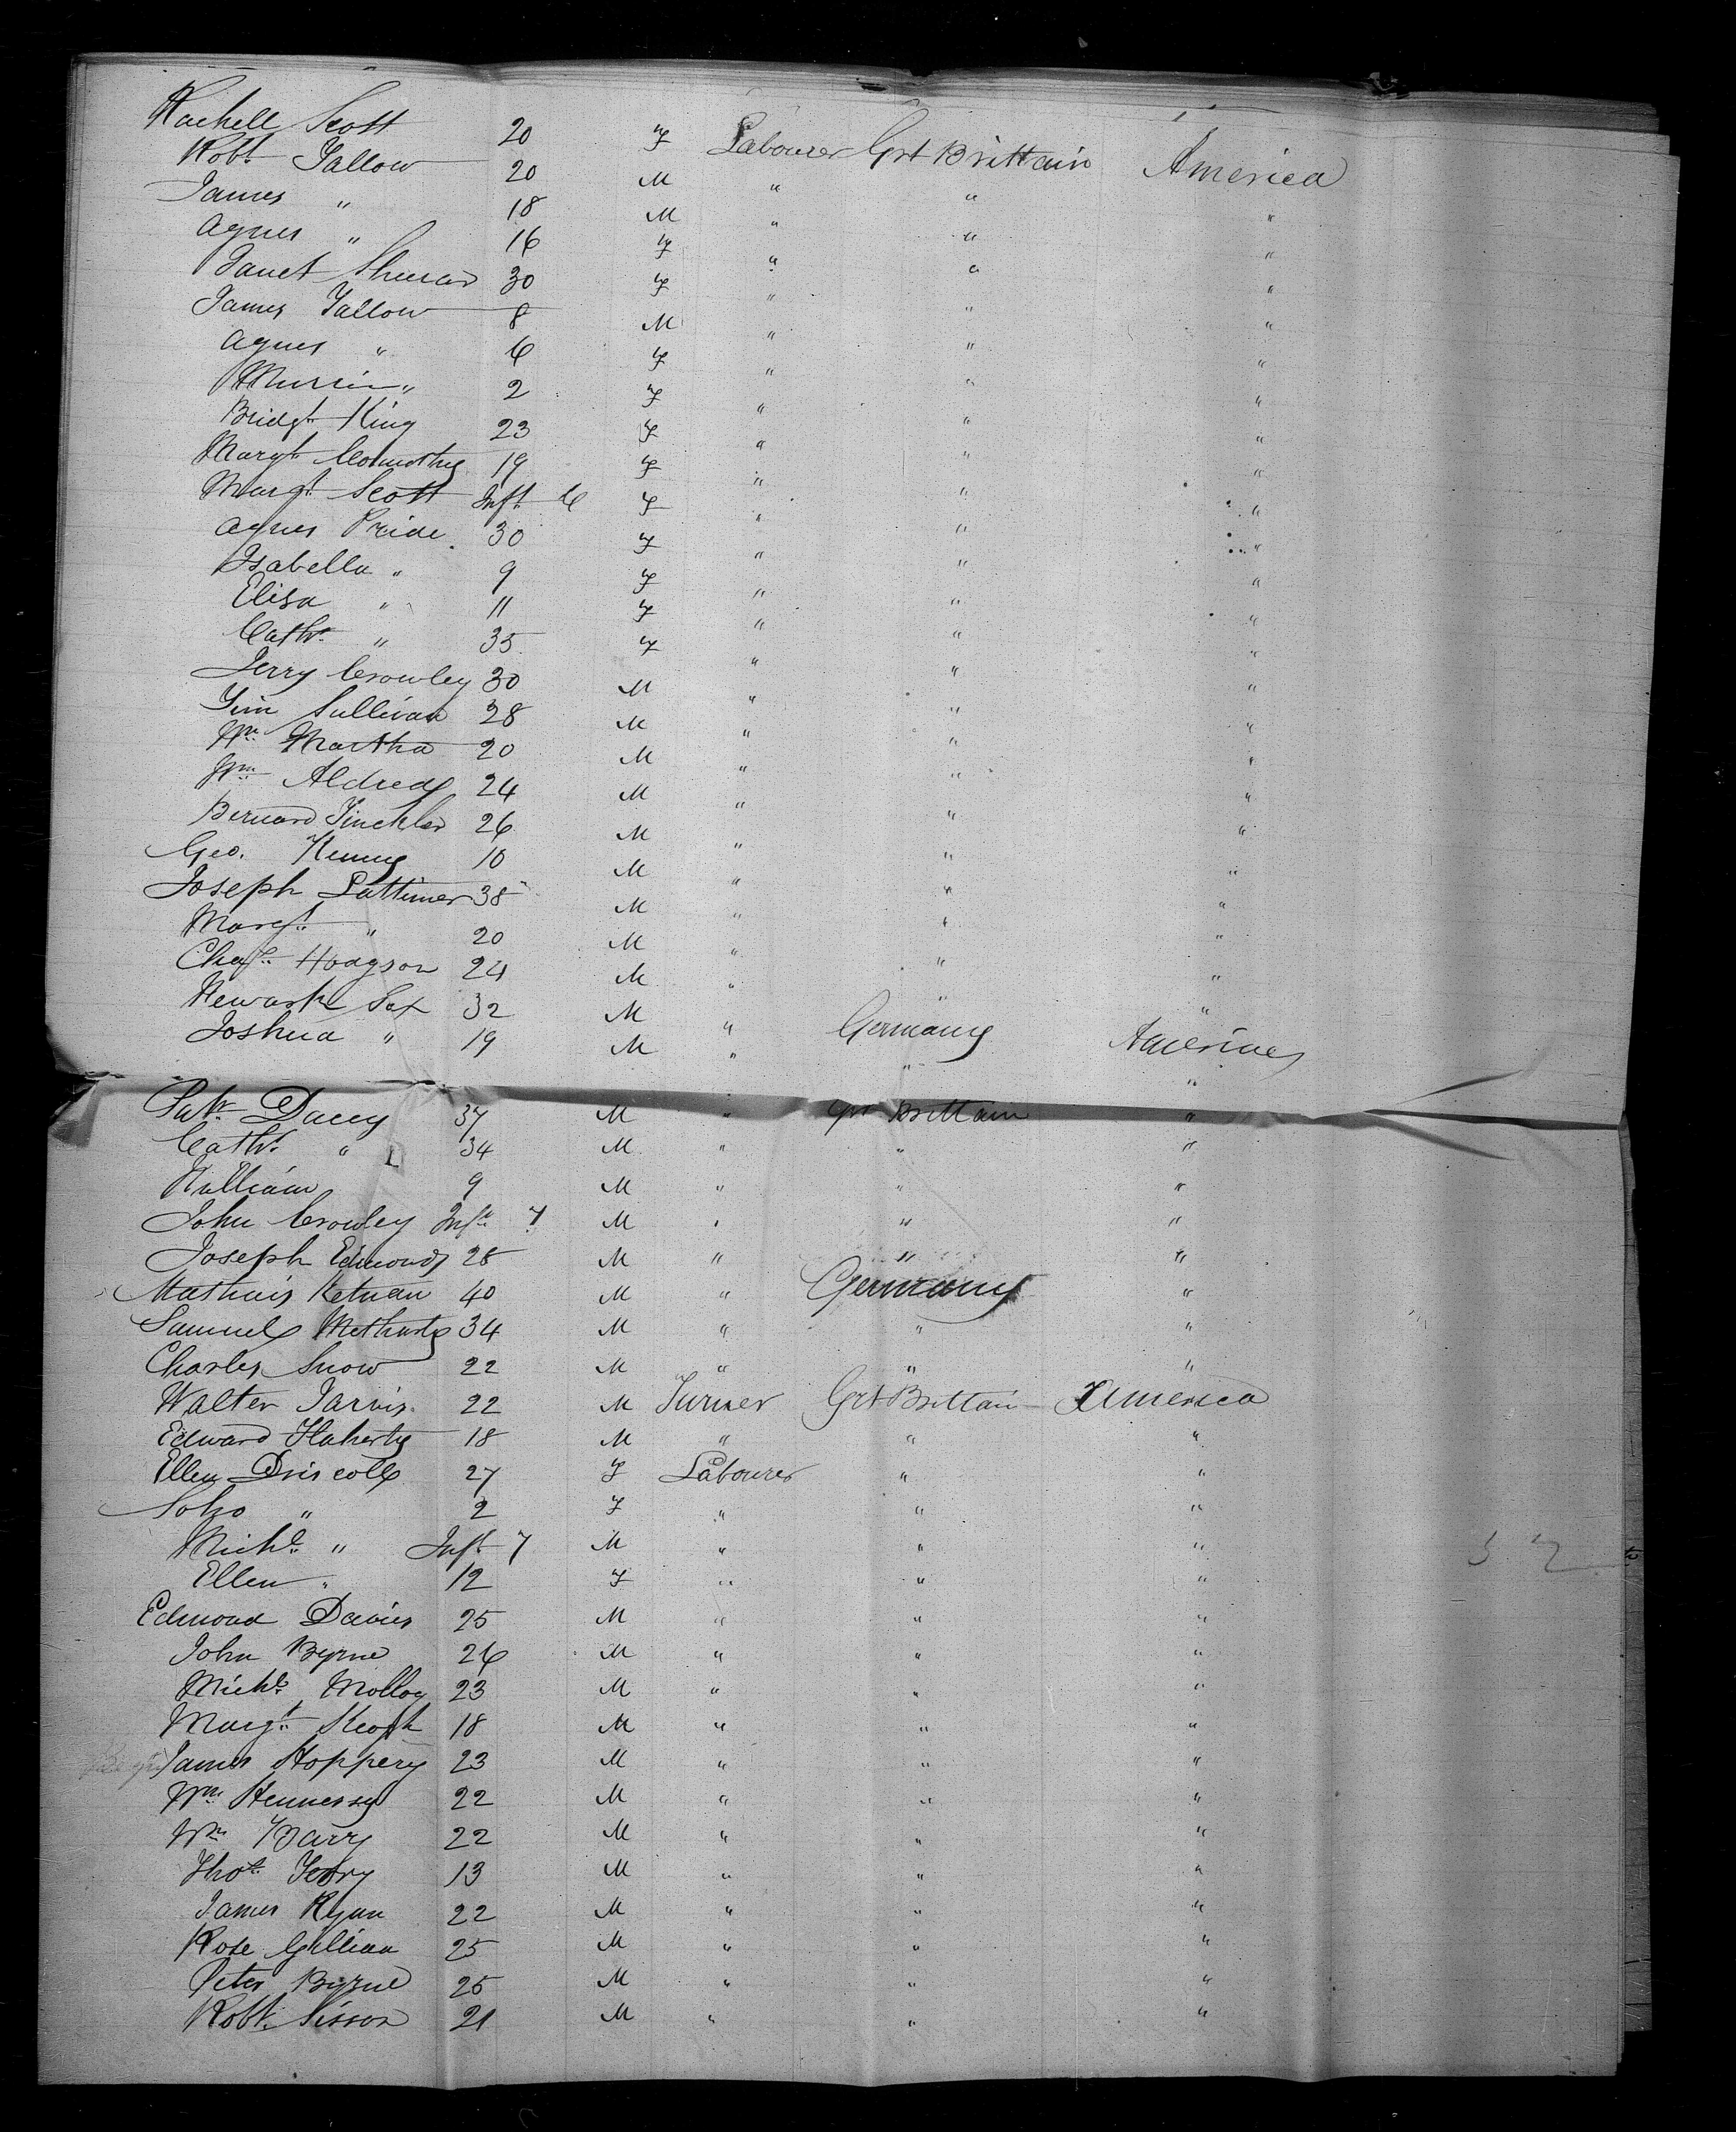 Rachell Scott 20 F Labourer Grt Brittain America
Robt Yallow 20 M " " "
James " 18 M " " "
Agnes " 16 F " " "
Janet 30 F " " "
James Yallow 8 M " " "
Agnes " 6 F " " "
" 2 F " " "
Bridgt King 23 F " " "
Margt 19 F " " "
Margt Scott Inft 6 F " " "
Agnes Pride 30 F " " "
Isabella " 9 F " " "
Elisa " 11 F " " "
Cathe " 35 F " " "
Jerry Crowley 30 M " " "
Tim Sullivan 28 M " " "
Wm Martha 20 M " " "
Wm Aldred 24 M " " "
Bernard 26 M " " "
Geo. Kenny 10 M " " "
Joseph Lattimer 38 M " " "
Margt " 20 M " " "
Chas Hodgson 24 M " " "
Newark Sax 32 M " Germany America
Joshua " 19 M " " "
Patk Dacey 37 M " Grt Brittain "
Cathe " 34 M " " "
William 9 M " " "
John Crowley Inft 7 M " " "
Joseph Edmonds 28 M " " "
Mathais Ketnan 40 M " Germany "
Samuel 34 M " " "
Charles Snow 22 M " " "
Walter Jarvis 22 M Turner Grt Brittain America
Edward Flaherty 18 M " " "
Ellen Driscoll 27 F Labourer " "
" 2 F " " "
Michl " Inft 7 M " " "
Ellen " 12 F " " "
Edmond Davies 25 M " " "
John Byrne 26 M " " "
Michl Molloy 23 M " " "
Margt Keogh 18 M " " "
James Hoppery 23 M " " "
Wm Hennessy 22 M " " "
Wm Barry 22 M " " "
Thos Terry 13 M " " "
James Ryan 22 M " " "
Rose Gillian 25 M " " "
Peter Byrne 25 M " " "
Robt Sisson 21 M " " "